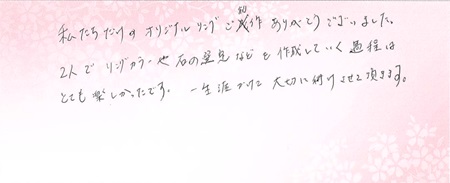 私たちだけのオリジナルリングご制作ありがとうございました。
2人でリングカラーや石の選見などを作成していく過程は
とても楽しかったです。一生涯かけて大切に付けさせて頂きます。